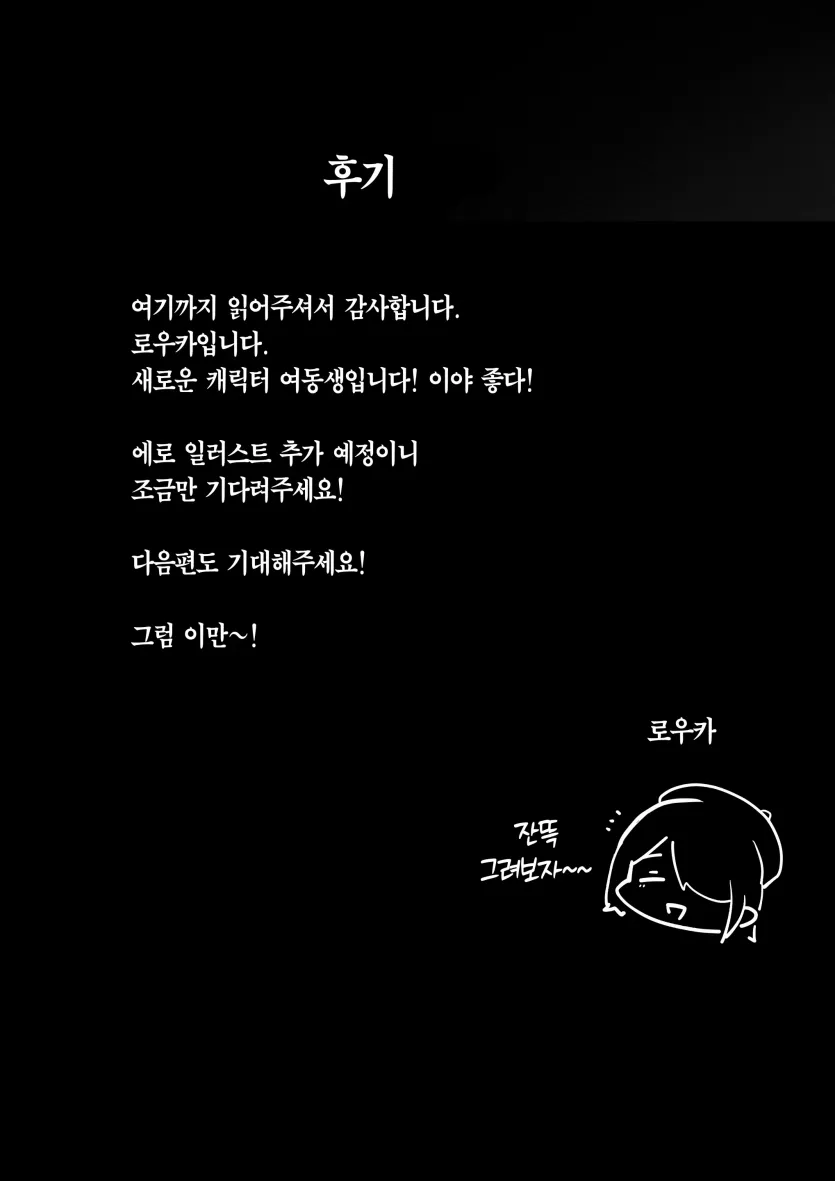 후기
여기까지 읽어주셔서 감사합니다.
로우카입니다.
새로운 캐릭터 여동생입니다! 이야 좋다!
에로 일러스트 추가 예정이니
조금만 기다려주세요!
다음편도 기대해주세요!
그럼 이만~!
로우카
잔뜩
그려보자~~